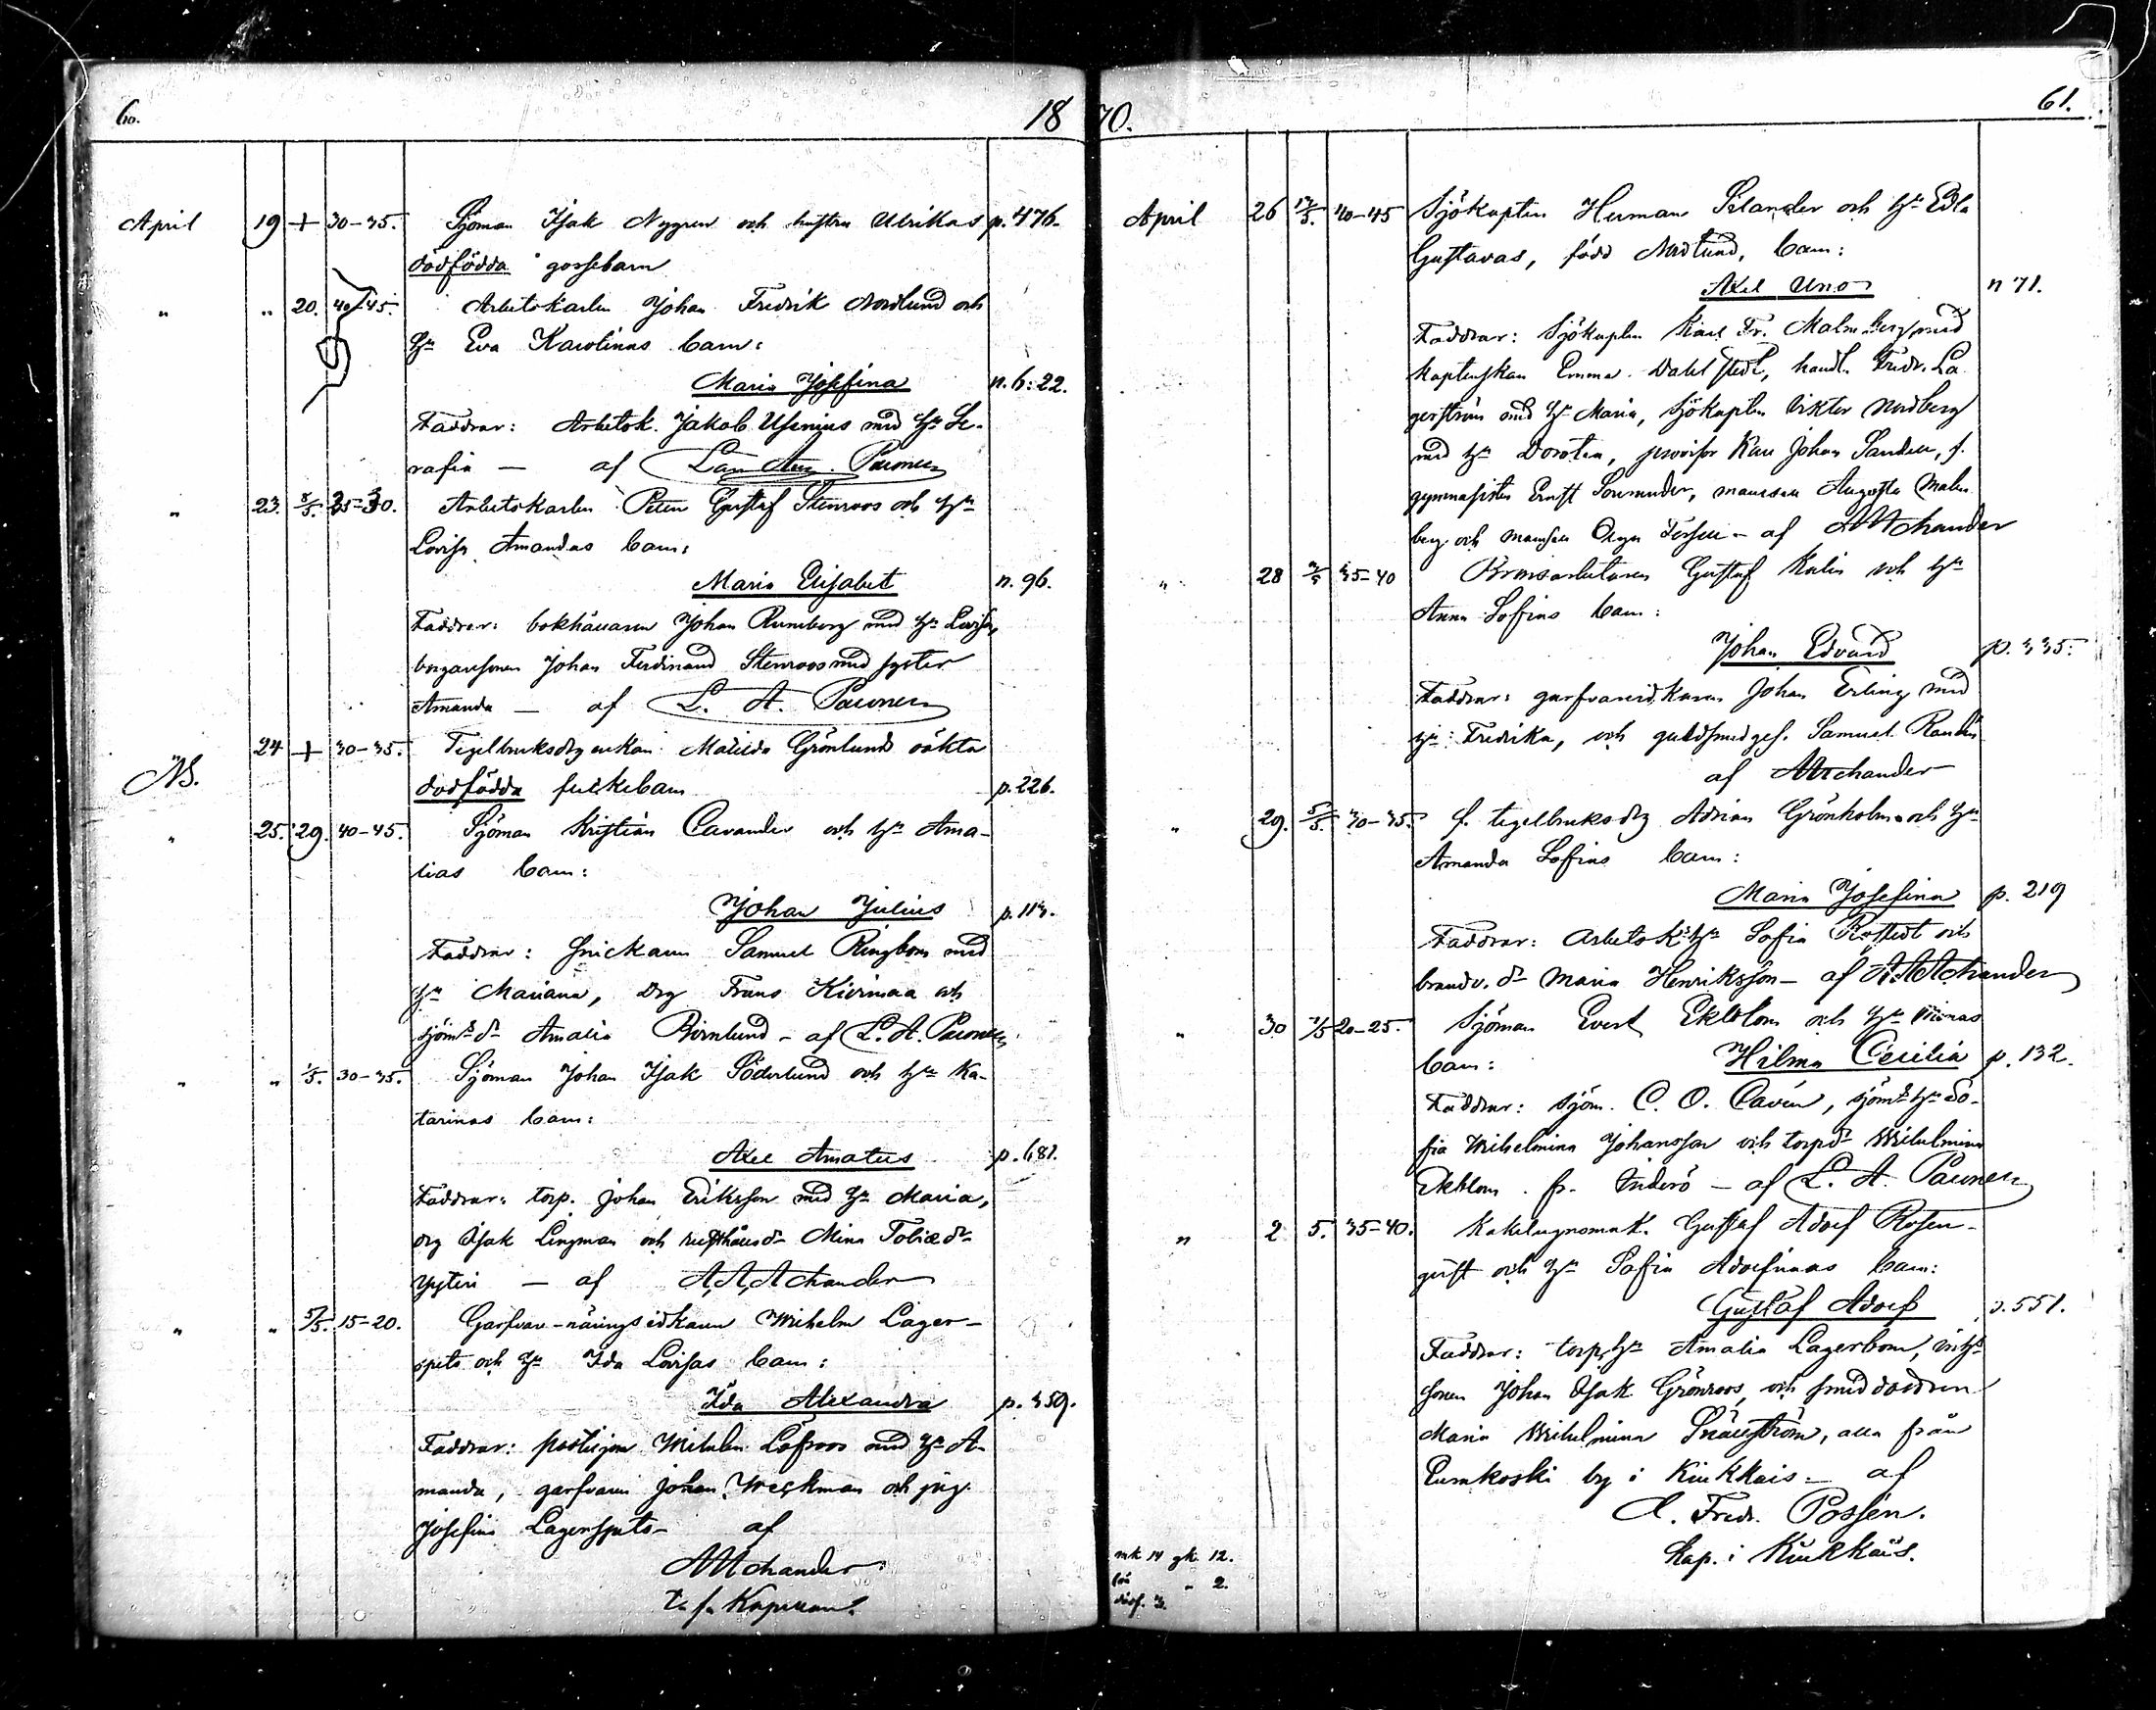 60. 18
April 19 + 30-35. Sjöman Isak Nygren och hustru Ulrikas p. 476.
dödfödda gossebarn
" " 20. 40-45. Arbetskarlen Johan Fredrik Nordlund och
hu Eva Karolinas barn:
Maria Josefina n. 6:22.
Faddrar: Arbetsk. Jakob Usenius med hu Se-
rafia — af Lars Aug. Pauner
" 23. 8/5. 25-30. Arbetskarlen Peter Gustaf Stenroos och hu
Lovisa Amandas barn:
Maria Elisabet n. 96.
Faddrar: bokhållaren Johan Runeberg med hu Lovisa,
borgaresonen Johan Ferdinand Stenroos med syster
Amanda — af L. A. Pauner
" 24 + 30-35. Tegelbruksdrgenkan Matilda Grönlunds oäkta
NB. dödfödda flickebarn p. 226.
" 25. 29. 40-45. Sjöman Kristian Cavander och hu Ama-
lias barn:
Johan Julius p. 113.
Faddrar: snickaren Samuel Ringbom med
hu Mariana, drg Frans Kivimaa och
sjöms dr Amalia Björnlund - af L. A. Pauner
" " 1/5. 30-35. Sjöman Johan Isak Söderlund och hu Ka-
tarinas barn:
Axel Amatus p. 681.
Faddrar: torp. Johan Eriksson med hu Maria,
drg Isak Lingman och dr Mina Tobiædr
— af A. A. Achander
" " 5/5. 15-20. Garfvar-näringsidkaren Wilhelm Lager-
spets och hu Ida Lovisas barn:
Ida Alexandra p. 359.
Faddrar: postiljon Wilhelm Löfroos med hu A-
manda, garfvaren Johan Weckman och pig.
Josefina Lagerspets — af
A. A. Achander
t. f. Kapellan.
70. 61.
April 26 17/5. 40-45 Sjökapten Herman Selander och hu Edla
Gustavas, född Nordlund, barn:
Axel Uno n 71.
Faddrar: Sjökapten Karl Fr. Malmberg med
kaptenskan Emma Dahlstedt, handl. Fredr. La
gerström med hu Maria, Sjökapten Viktor Nordberg
med hu Dorotea, provisor Karl Johan Sandell, f.
gymnasisten Ernst , mamsell Augusta Malm
berg och mamsell Olga — af A A Achander
" 28 35-40 Bruksarbetaren Gustaf Kalin och hu
Anna Sofias barn:
Johan Edvard p. 335.
Faddrar: garfvareidkaren Johan Erling med
hu Fredrika, och guldsmedges. Samuel Randén
af A A Achander
" 29. 5/5. 30-35. f. tegelbruksdrg Adrian Grönholm och hu
Amanda Sofias barn:
Maria Josefina p. 219
Faddrar: arbetsks hu Sofia Rostedt och
brandv. dr Maria Henriksson — af A. A. Achander
" 30 1/5 20-25. Sjöman Evert Ekblom och hu Minas
barn: Hilma Cecilia p. 132.
Faddrar: sjöm. C. O. Cavén, sjöms hu So-
fia Wilhelmina Johansson och torpdr Wilhelmina
Ekblom fr. — af L. A. Pauner
" 2 5. 35-40. Kakelugnsmak. Gustaf Adolf Rosen-
qvist och hu Sofia Adolfinas barn:
Gustaf Adolf p. 551.
Faddrar: torp. hu Amalia Lagerbom, inhs
sonen Johan Isak Grönroos, och smeddottren
Maria Wilhelmina Snällström, alla från
by i Kiukkais — af
C. Fredr. Possén.
Kap. i Kiukkais.
mk 14 qk. 12.
" 2.
dödf. 3.